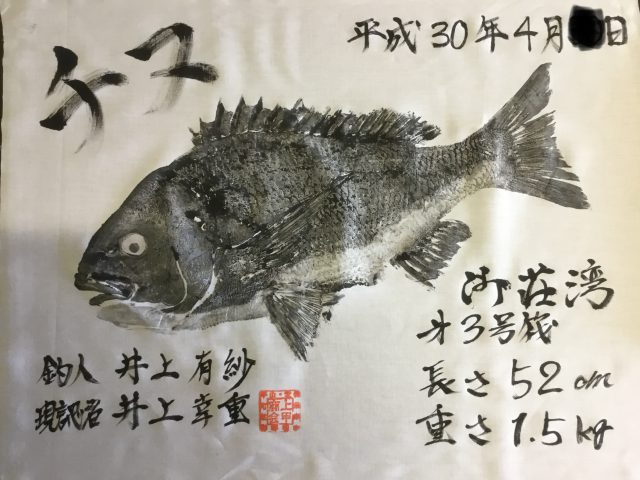 平成30年4月 日
チヌ
御荘湾
才3号筏
長さ52cm
重さ1.5kg
釣人 井上有紗
現認者 井上幸重